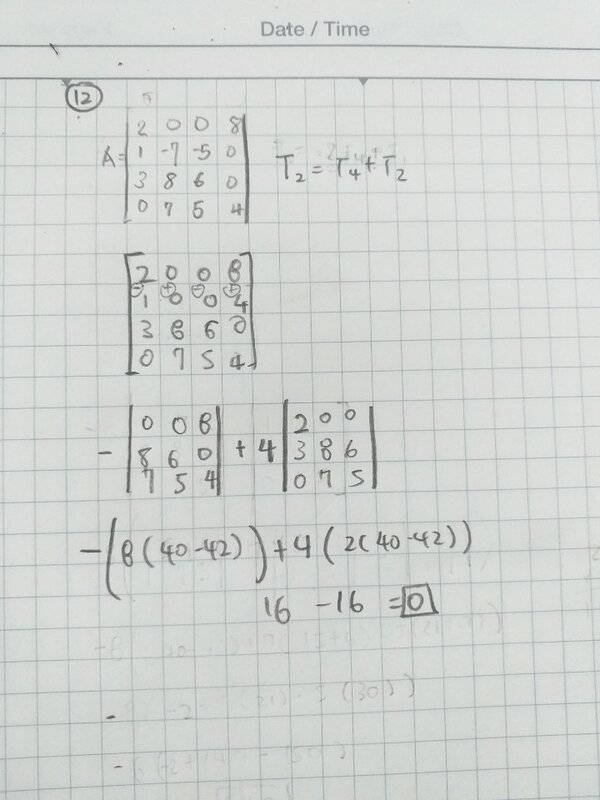 Date / Time
12
A = | 2 0 0 8 |
| 1 -7 -5 0 |
| 3 8 6 0 |
| 0 7 5 4 |
T₂ = T₄ + T₂
[ 2 0 0 8 ]
[ ⊖1 ⊕0 ⊖0 ⊕4 ]
[ 3 8 6 0 ]
[ 0 7 5 4 ]
- | 0 0 8 | + 4 | 2 0 0 |
| 8 6 0 | | 3 8 6 |
| 7 5 4 | | 0 7 5 |
-(8(40-42)) + 4(2(40-42))
16 -16 = 0